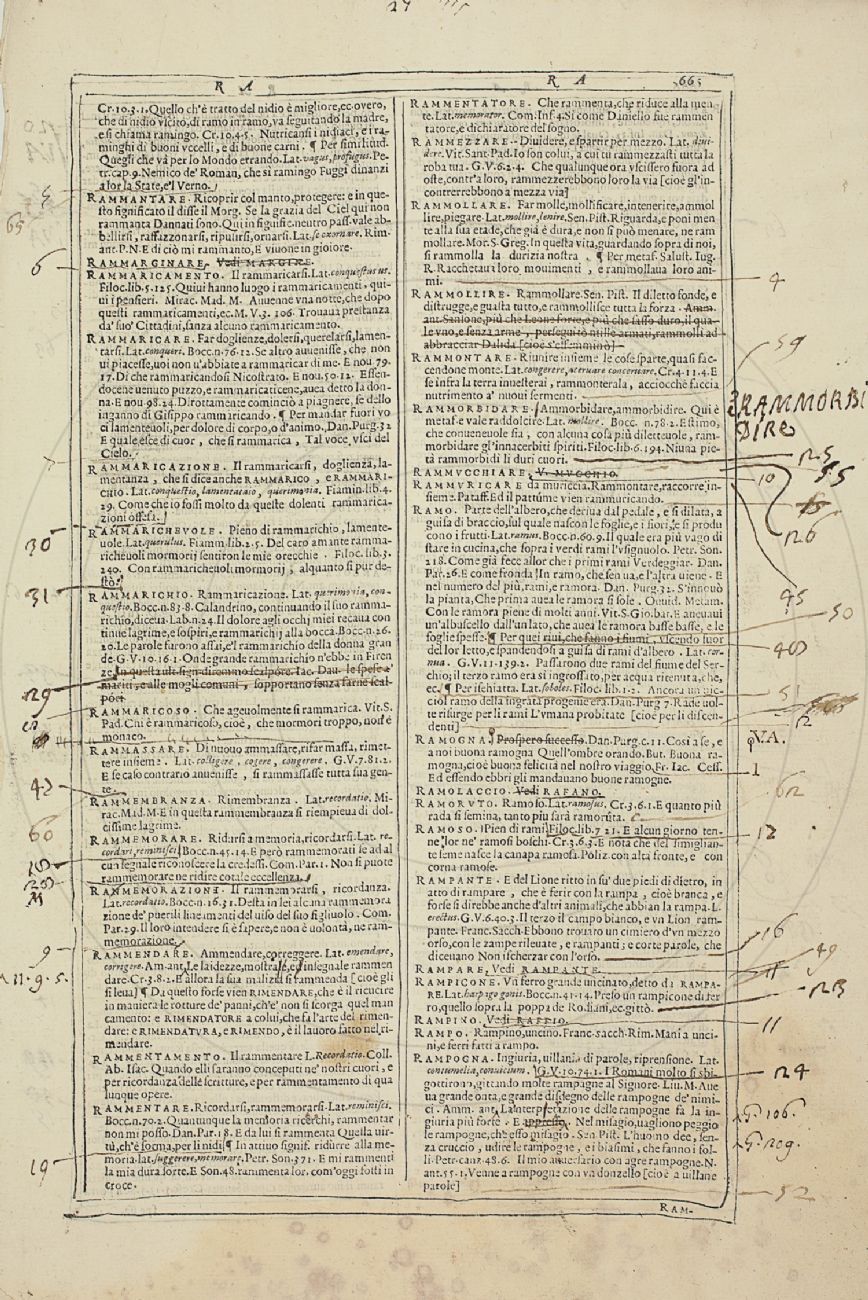 R A
R A 665
Cr.10.3.1. Quello ch'è tratto del nidio è migliore, ec. overo,
che di nidio uscito, di ramo in ramo, va seguitando la madre,
e si chiama ramingo. Cr.10.4.5. Nutricansi i nidiaci, e i ra-
minghi di buoni vccelli, e di buone carni. ¶ Per similitud.
Quegli che và per lo Mondo errando. Lat. vagus, profugus. Pe-
tr. cap.9. Nemico de' Roman, che sì ramingo Fuggì dinanzi
a lor la State, e'l Verno.
RAMMANTARE. Ricoprir col manto, proteger: e in que-
sto significato il disse il Morg. Se la grazia del Ciel qui non
rammanta Dannati sono. Qui in signific. neutro pass. vale ab-
bellirsi, raffazzonarsi, ripulirsi, ornarsi. Lat. se exornare. Rim.
ant. P.N.E di ciò mi rammanto, E viuone in gioiore.
RAMMARGINARE. Vedi MARGINE.
RAMMARICAMENTO. Il rammaricarsi. Lat. conquestus us.
Filoc. lib.5.125. Quiui hanno luogo i rammaricamenti, qui-
ui i pensieri. Mirac. Mad. M. Auuenne vna notte, che dopo
questi rammaticamenti, ec. M. V.3. 106. Trouaua prestanza
da' suo' Cittadini, sanza alcuno rammaricamento.
RAMMARICARE. Far doglienze, dolersi, querelarsi, lamen-
tarsi. Lat. conqueri. Bocc. n.76.12. Se altro auuenisse, che non
ui piacesse, uoi non u'abbiate a rammaricar di me. E nou.79.
17. Di che rammaricandosi Nicostrato. E nou.50.12. Essen-
docene uenuto puzzo, e rammaricaticene, auea detto la don-
na. E nou.98.24. Dirottamente cominciò a piagnere, se dello
inganno di Gisippo rammaricando. ¶ Per mandar fuori vo
ci lamenteuoli, per dolore di corpo, o d'animo. Dan. Purg.32
E quale esce di cuor, che si rammarica, Tal voce vscì del
Cielo.
RAMMARICAZIONE. Il rammaricarsi, doglienza, la-
mentanza, che si dice anche RAMMARICO, e RAMMARI-
CHIO. Lat. conquestio, lamentatio, querimonia. Fiamm. lib.4.
29. Come io fossi molto da queste dolenti rammarica-
zioni offesa.
RAMMARICHEVOLE. Pieno di rammarichio, lamente-
uole. Lat. querulus. Fiamm. lib.2.5. Del caro amante ramma-
richeuoli mormorij sentiron le mie orecchie. Filoc. lib.3.
240. Con rammaricheuoli mormorij, alquanto si pur de-
stò.
RAMMARICHIO. Rammaricazione. Lat. querimonia, con-
questio. Bocc. n.83.8. Calandrino, continuando il suo ramma-
richio, diceua. Lab. n.24. Il dolore agli occhj miei recaua con
tinue lagrime, e sospiri, e rammarichij alla bocca. Bocc. n.26.
20. Le parole furono assai, e'l rammarichio della donna gran
de. G.V.10.16.1. Onde grande rammarichio n'ebbe in Firen
ze. In questa ult. sign. diremmo scalpore. Iac. Dau. le spese a'
mariti, e alle mogli comuni, sopportano senza farne scal-
pore
RAMMARICOSO. Che ageuolmente si rammarica. Vit. S.
Pad. Chi è rammaricoso, cioè, che mormori troppo, non è
monaco.
RAMMASSARE. Di nuouo ammassare, rifar massa, rimet-
tere insieme. Lat. colligere, cogere, congerere. G.V.7.81.2.
E se caso contrario auuenisse, si rammassasse tutta sua gen-
te.
RAMMEMBRANZA. Rimembranza. Lat. recordatio. Mi-
rac. Mad. M. E in questa rammembranza si riempieua di dol-
cissime lagrime.
RAMMEMORARE. Ridursi a memoria, ricordarsi. Lat. re-
cordari, reminisci. Bocc. n.45.14. E però rammemorati se ad al
cun segnale riconoscere la credessi. Com. Par.1. Non si puote
rammemorare ne ridire cotale eccellenza.
RAMMEMORAZIONE. Il rammemorarsi, ricordanza.
Lat. recordatio. Bocc. n.16.31. Desta in lei alcuna rammemora
zione de' puerili lineamenti del uiso del suo figliuolo. Com.
Par.29. Il loro intendere si è sapere, e non è uolontà, ne ram-
memorazione.
RAMMENDARE. Ammendare, correggere. Lat. emendare,
corrigere. Am. ant. Le laidezze, mostrale, ed insegnale rammen
dare. Cr.3.8.2. E allora la sua malizia si rammenda [cioè gli
si leua] ¶ Da questo forse vien RIMENDARE, che è il ricucire
in maniera le rotture de' panni, ch'e' non si scorga quel man
camento: e RIMENDATORE a colui, che fa l'arte del rimen-
dare: e RIMENDATVRA, e RIMENDO, è il lauoro fatto nel ri-
mendare.
RAMMENTAMENTO. Il rammentare L. Recordatio. Coll.
Ab. Isac. Quando elli saranno conceputi ne' nostri cuori, e
per ricordanza delle scritture, e per rammentamento di qua
lunque opere.
RAMMENTARE. Ricordarsi, rammemorarsi. Lat. reminisci.
Bocc. n.70.2. Quantunque la memoria ricerchi, rammentar
non mi posso. Dan. Par.18. E da lui si rammenta Quella uir-
tù, ch'è forma, per li nidi. ¶ In attiuo signif. ridurre alla me-
moria. lat. suggerere, memorare. Petr. Son.371. E mi rammenti
la mia dura sorte. E Son.48. rammenta lor, com'oggi fosti in
croce.
RAMMENTATORE. Che rammenta, che riduce alla men
te. Lat. memorator. Com. Inf.4. Sì come Daniello fue rammen
tatore, e dichiaratore del sogno.
RAMMEZZARE. Diuidere, e spartir per mezzo. Lat. diui-
dere. Vit. Sant. Pad. Io son colui, a cui tu rammezzasti tutta la
roba tua. G.V.6.2.4. Che qualunque ora vscissero fuori ad
oste, contr'a loro, rammezzerebbono loro la via [cioè gl'in-
contrerrebbono a mezza via]
RAMMOLLARE. Far molle, mollificare, intenerire, ammol
lire, piegare. Lat. mollire, lenire. Sen. Pist. Riguarda, e poni men
te alla sua etade, che già è dura, e non si può menare, ne ram
mollare. Mor. S. Greg. In questa vita, guardando sopra di noi,
si rammolla la durizia nostra. ¶ Per metaf. Salust. Iug.
R. Racchetaua loro mouimenti, e rammollaua loro ani-
mi.
RAMMOLLIRE. Rammollare. Sen. Pist. Il diletto fonde, e
distrugge, e guasta tutto, e rammollisce tutta la forza. Amm.
ant. Sansone, più che Leone forte, e più che sasso duro, il qua-
le vno, e senza arme, perseguitò mille armati, rammollì ad
abbracciar Dalida [cioè s'effemminò]
RAMMONTARE. Riunire insieme le cose sparte, quasi fac-
cendone monte. Lat. congerere, aceruare, concertare. Cr.4.11.4. E
se infra la terra inuesterai, rammonterala, acciocché faccia
nutrimento a' nuoui sermenti.
RAMMORBIDARE. Ammorbidare, ammorbidire. Qui è
metaf. e vale raddolcire. Lat. mollire. Bocc. n.78.2. Estimo,
che conueneuole sia, con alcuna cosa più diletteuole, ram-
morbidare gl'innacerbiti spiriti. Filoc. lib.6.194. Niuna pie-
tà rammorbidì li duri cuori.
RAMMVCCHIARE. V. MVCCHIO.
RAMMVRICARE da muriccia. Rammontare, raccorre in-
sieme. Pataff. Ed il pattume vien rammuricando.
RAMO. Parte dell'albero, che deriua dal pedale, e si dilata, a
guisa di braccio, sul quale nascon le foglie, e i fiori, e si produ
cono i frutti. Lat. ramus. Bocc. n.60.9. Il quale era più vago di
stare in cucina, che sopra i verdi rami l'vsignuolo. Petr. Son.
218. Come già fece allor che i primi rami Verdeggiar. Dan.
Par.26. E come fronda In ramo, che sen ua, e l'altra uiene. E
nel numero del più, rami, e ramora. Dan. Purg.32. S'innouò
la pianta, Che prima auea le ramora sì sole. Ouuid. Metam.
Con le ramora piene di molti anni. Vit. S. Gio. bat. E aueuaui
un'albuscello dall'un lato, che auea le ramora basse basse, e le
foglie spesse. ¶ Per quei riui, che fanno i fiumi, vscendo fuor
del lor letto, e spandendosi a guisa di rami d'albero. Lat. cor-
nua. G.V.11.139.2. Passarono due rami del fiume del Ser-
chio; il terzo ramo era sì ingrossato, per acqua ritenuta, che,
ec. ¶ Per ischiatta. Lat. soboles. Filoc. lib.1.2. Ancora un pic-
ciol ramo della ingrata progenie era. Dan. Purg.7. Rade uol-
te risurge per li rami L'vmana probitate [cioè per li discen-
denti]
RAMOGNA. Prospero successo. Dan. Purg. c.11. Così a se, e
a noi buona ramogna Quell'ombre orando. But. Buona ra-
mogna, cioè buona felicità nel nostro viaggio. Fr. Iac. Cess.
Ed essendo ebbri gli mandauano buone ramogne.
RAMOLACCIO. Vedi RAFANO.
RAMORVTO. Ramoso. Lat. ramosus. Cr.3.6.1. E quanto più
rada si semina, tanto più sarà ramoruta.
RAMOSO. Pien di rami. Filoc. lib.7.21. E alcun giorno ten-
ne, lor ne' ramosi boschi. Cr.3.6.3. E nota che del simiglian-
te seme nasca la canapa ramosa. Poliz. con alta fronte, e con
corna ramose.
RAMPANTE. E del Lione ritto in su' due piedi di dietro, in
atto di rampare, che è ferir con la rampa, cioè branca, e
forse si direbbe anche d'altri animali, che abbian la rampa. L.
erectus. G.V.6.40.3. Il terzo il campo bianco, e vn Lion ram-
pante. Franc. Sacch. Ebbono trouato un cimiero d'vn mezzo
orso, con le zampe rileuate, e rampanti; e certe parole, che
diceuano Non ischerzar con l'orso.
RAMPARE. Vedi RAMPANTE.
RAMPICONE. Vn ferro grande uncinato, detto da RAMPA-
RE. Lat. harpago gonis. Bocc. n.41.14. Preso un rampicone di fer
ro, quello sopra la poppa de Rodiani, ec. gittò.
RAMPINO. Vedi RAFFIO.
RAMPO. Rampino, uncino. Franc. sacch. Rim. Mani a unci-
ni, e ferri fatti a rampo.
RAMPOGNA. Ingiuria, uillania di parole, riprensione. Lat.
contumelia, conuicium. G.V.10.74.1. I Romani molto si sbi-
gottirono, gittando molte rampogne al Signore. Liu. M. Aue
ua grande onta, e grande disdegno delle rampogne de' nimi-
ci. Amm. ant. La interpretazione delle rampogne fa la in-
giuria più forte. E appresso. Nel misagio, uagliono peggio
le rampogne, che esso misagio. Sen. Pist. L'huomo dee, sen-
za cruccio, udire le rampogne, e i biasimi, che fanno i fol-
li. Petr. canz.48.6. Il mio auuersario con agre rampogne. N.
ant.55.1. Venne a rampogne con vn donzello [cioè a uillane
parole]
RAM-
5
65
6
30
31
29
42
60
9
11.9.5.
19
4
59
RAMMORBI
DIRE
25
55
10
26
95
50
40
VA.
1
62
12
16
49
23
11
24
G. 106.
G. 209.
52